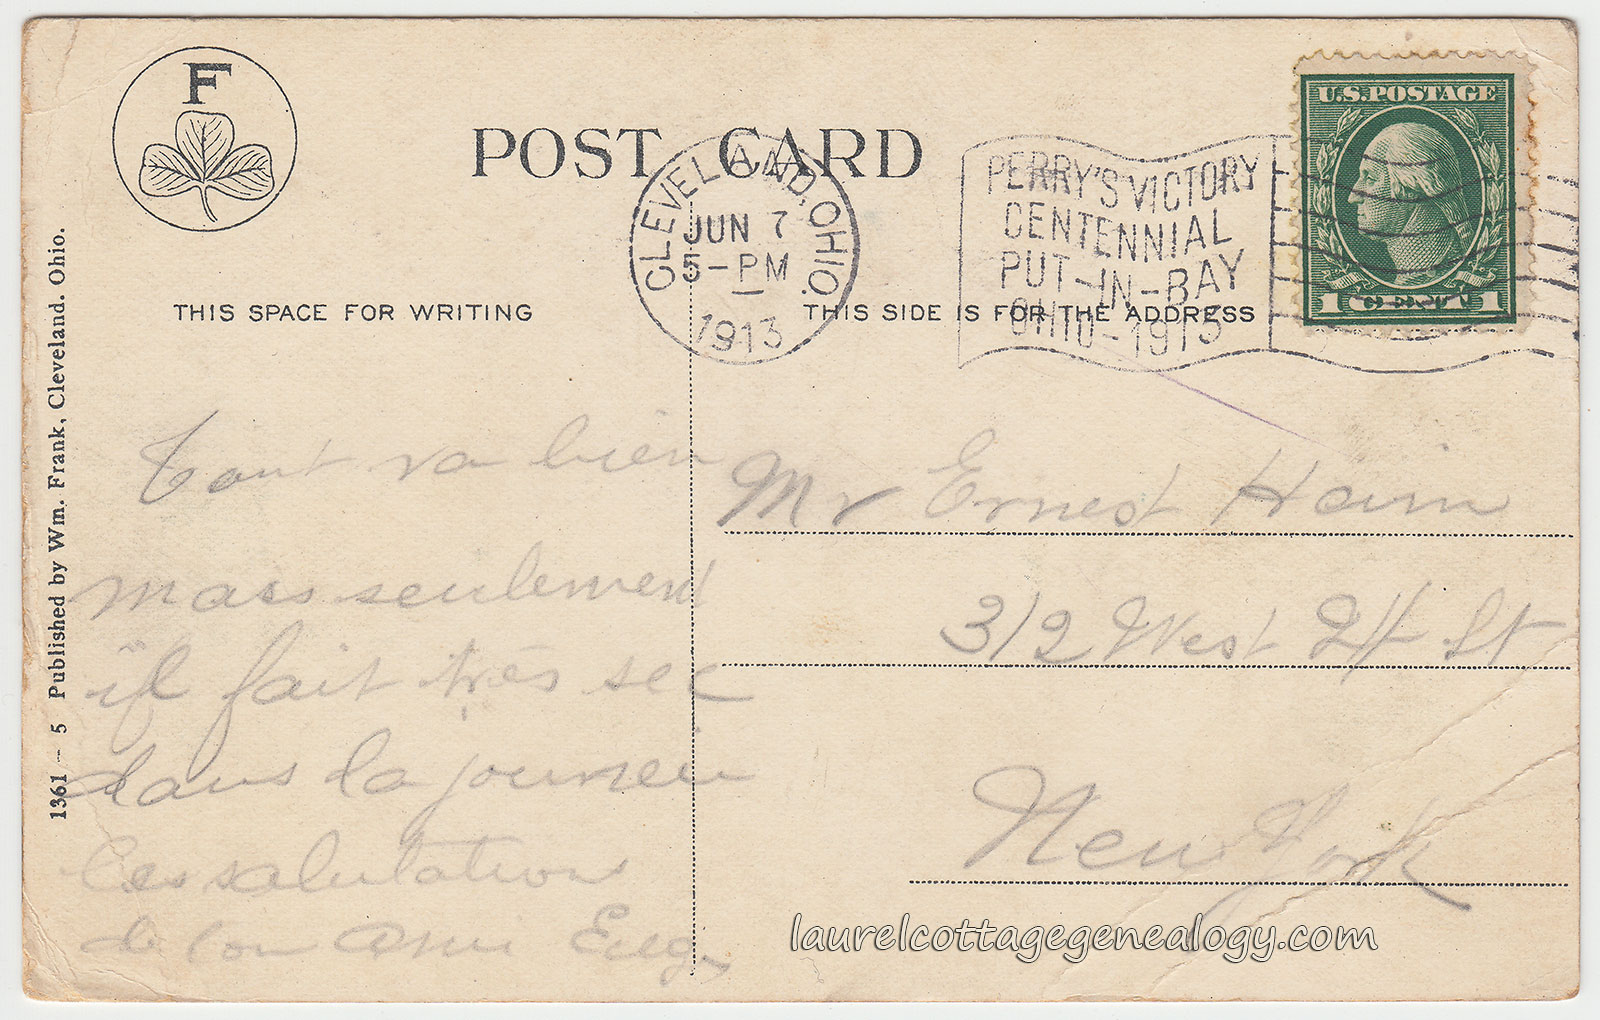 F
POST CARD
CLEVELAND, OHIO.
JUN 7
5-PM
1913
PERRY'S VICTORY
CENTENNIAL
PUT-IN-BAY
OHIO-1913
U.S.POSTAGE
1 CENT 1
THIS SPACE FOR WRITING
THIS SIDE IS FOR THE ADDRESS
1361 - 5 Published by Wm. Frank, Cleveland. Ohio.
Tout va bien
mais seulement
il fait très sec
dans la journeé
Les salutations
de ton ami Eug.
Mr Ernest Haim
312 West 24 St
New York
laurelcottagegenealogy.com